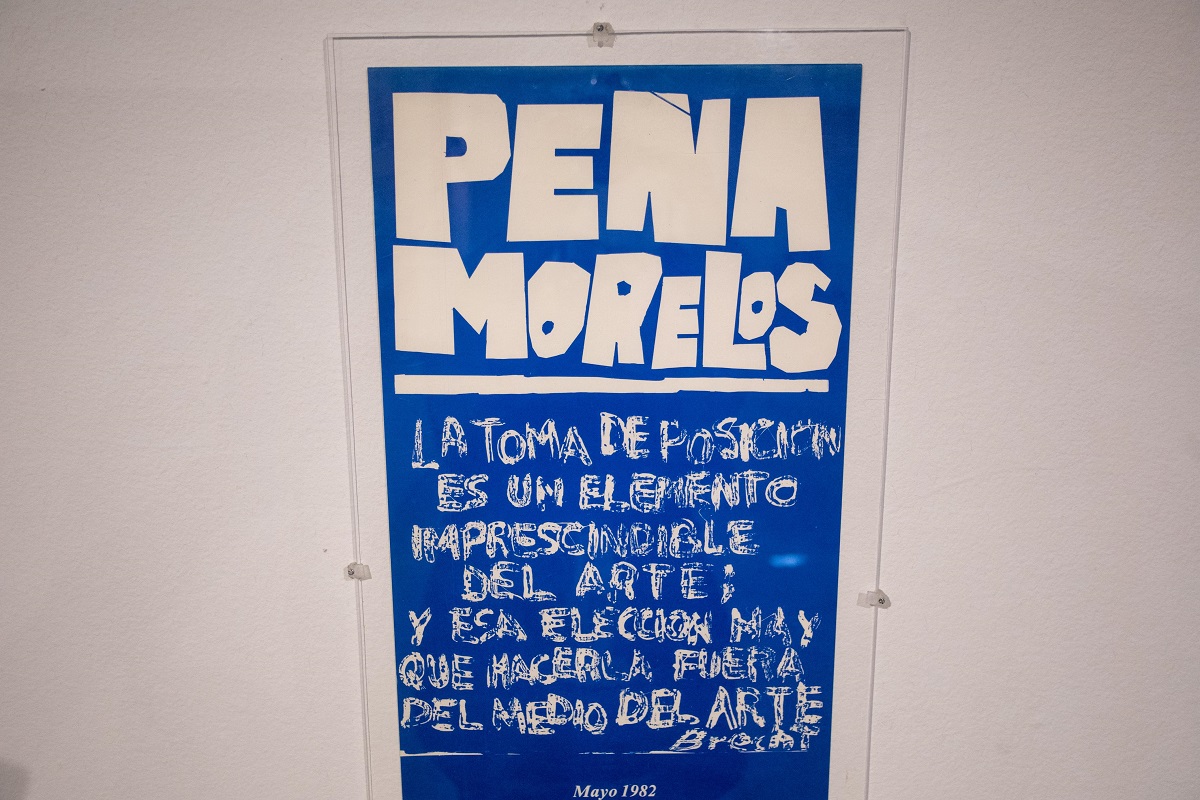 PEÑA
MORELOS
LA TOMA DE POSICION
ES UN ELEMENTO
IMPRESCINDIBLE
DEL ARTE;
Y ESA ELECCION HAY
QUE HACERLA FUERA
DEL MEDIO DEL ARTE
Brecht
Mayo 1982